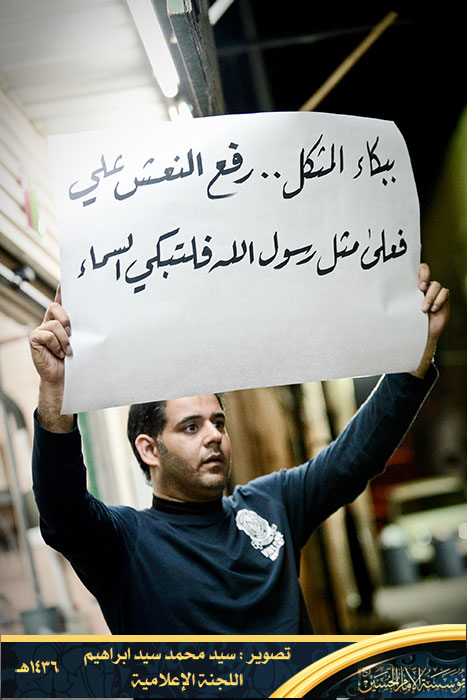 ببكاء المثكل .. رفع النعش علي
فعلى مثل رسول الله فلتبكي السماء
تصوير : سيد محمد سيد ابراهيم
اللجنة الإعلامية
١٤٣٦هـ
مؤسسة الإمام الحسين